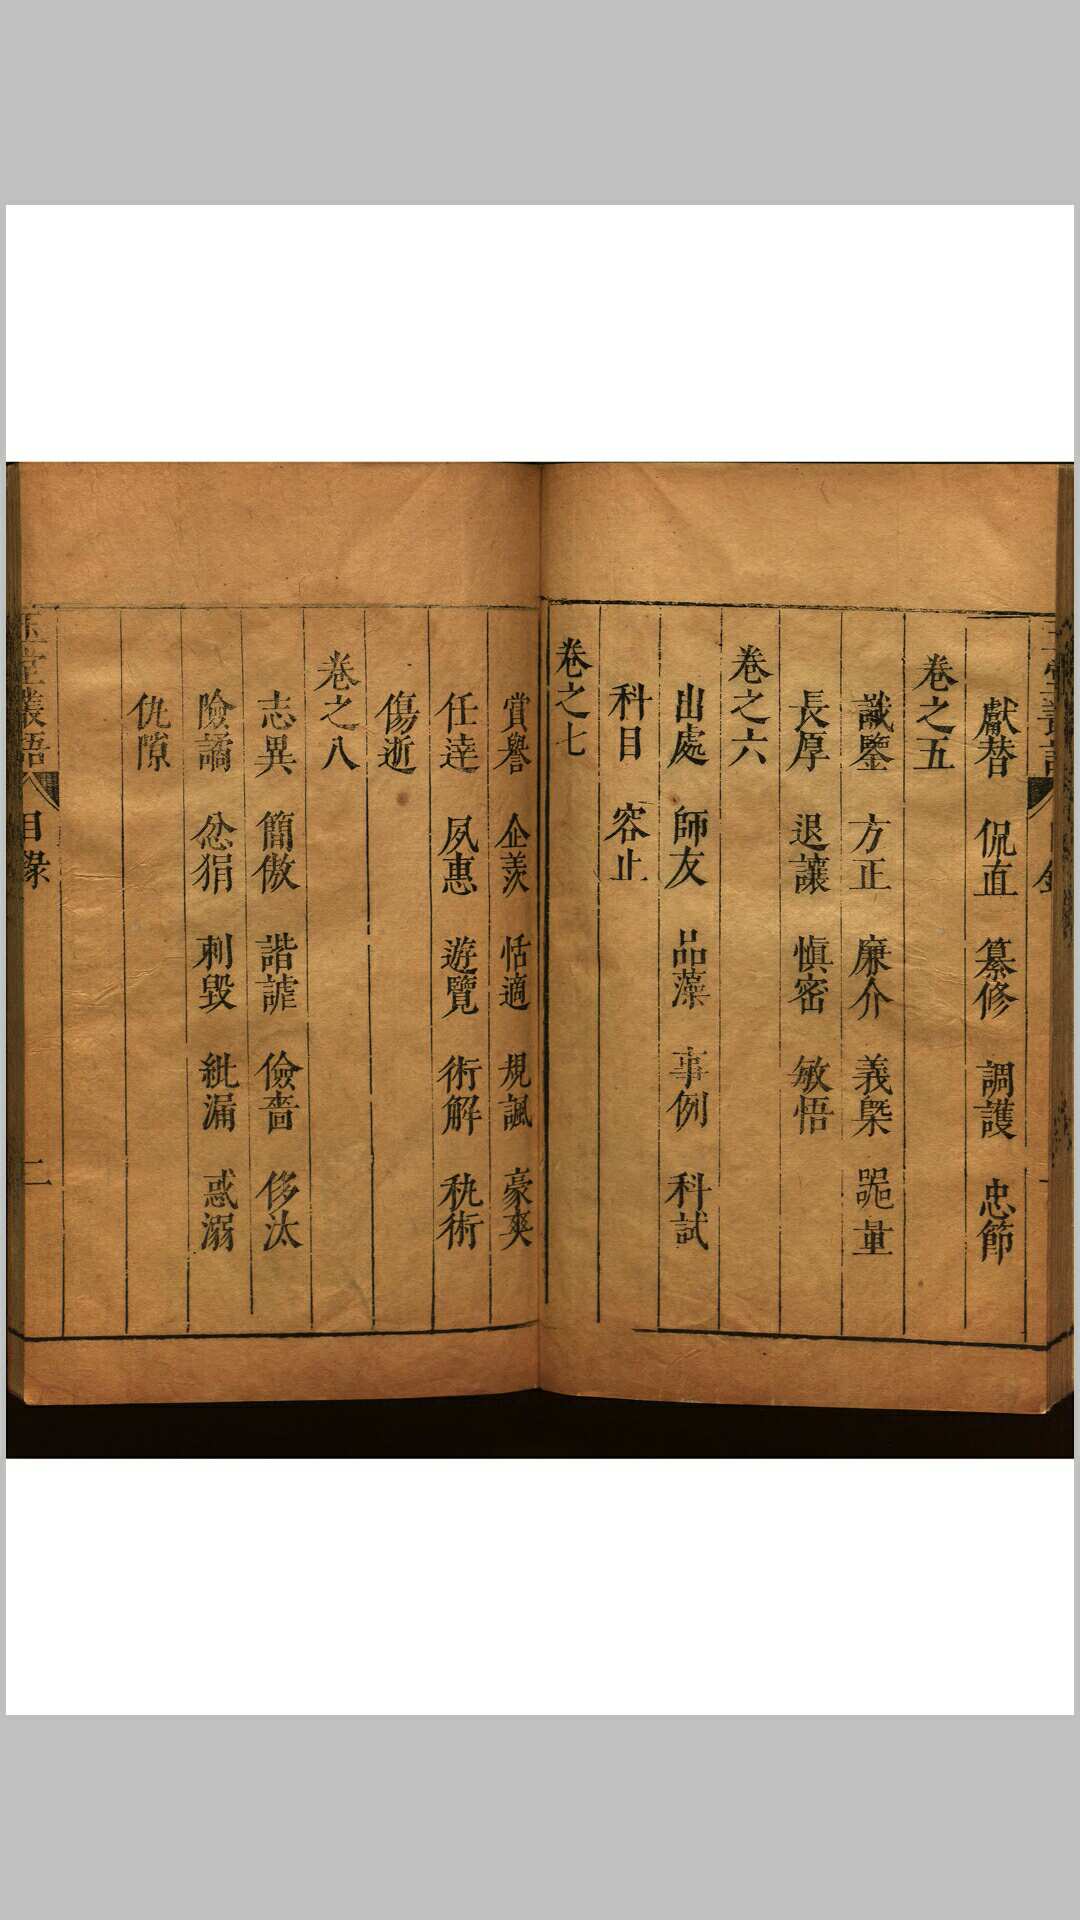 獻替 侃直 纂修 調護 忠節
卷之五
識鑒 方正 廉介 義槩 器量
長厚 退讓 慎密 敏悟
卷之六
出處 師友 品藻 事例 科試
科目 容止
卷之七
賞譽 企羨 恬適 規諷 豪爽
任達 夙惠 遊覽 術解 䄻術
傷逝
卷之八
志異 簡傲 諧謔 儉嗇 侈汰
險譎 忿狷 刺毀 紕漏 惑溺
仇隙
玉堂叢語 目錄 二